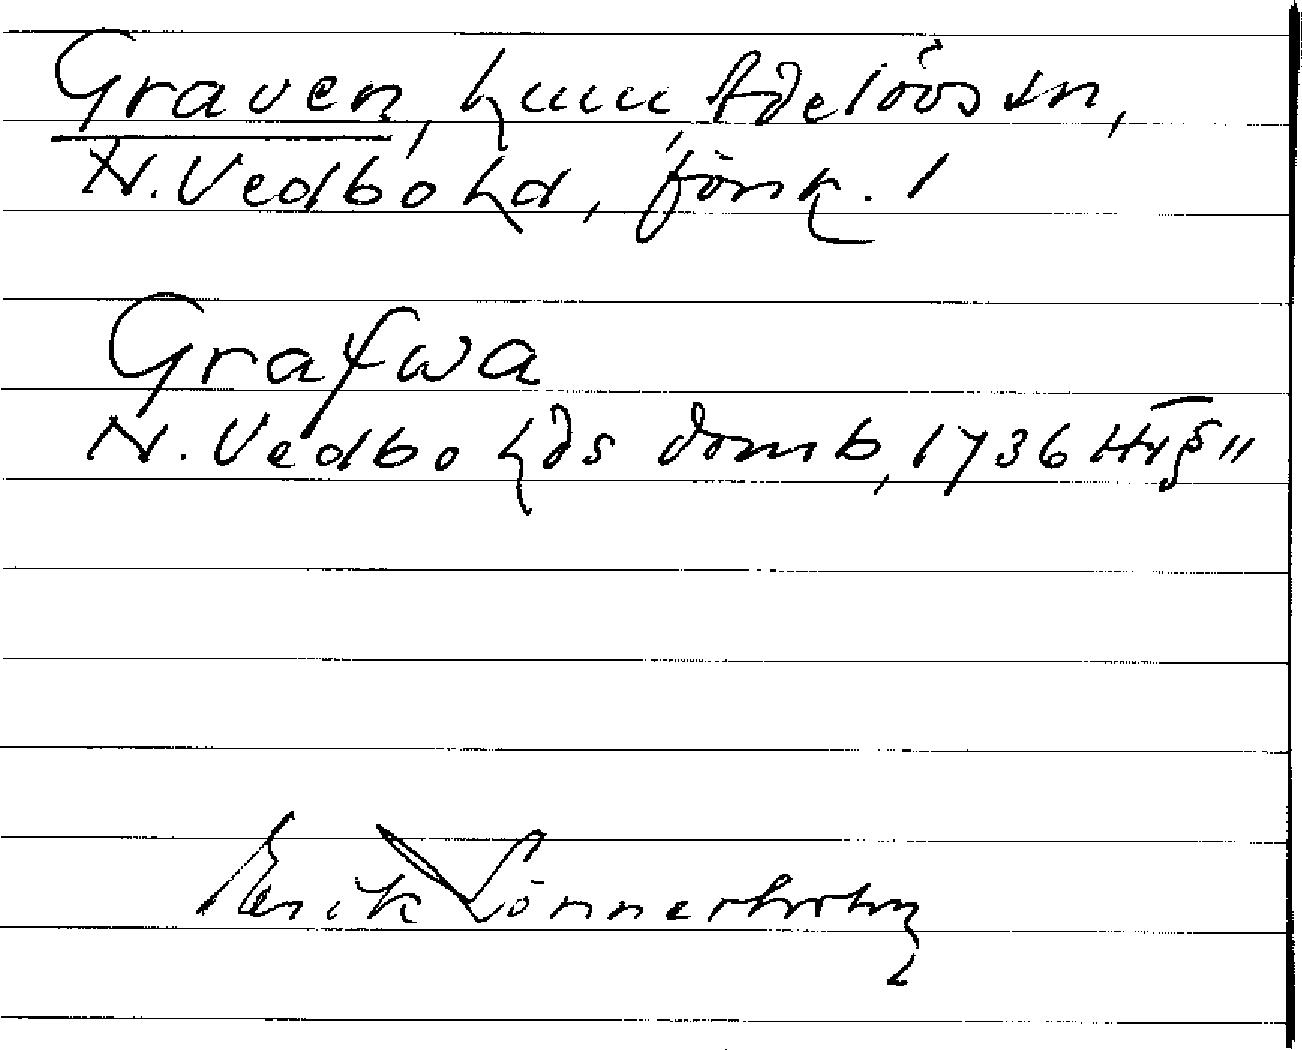 Graven, hmm, Adelövs sn,
N. Vedbo hd, förk. 1
Grafwa
N. Vedbo hds domb, 1736 Ht §"
Erik Lönnerholm